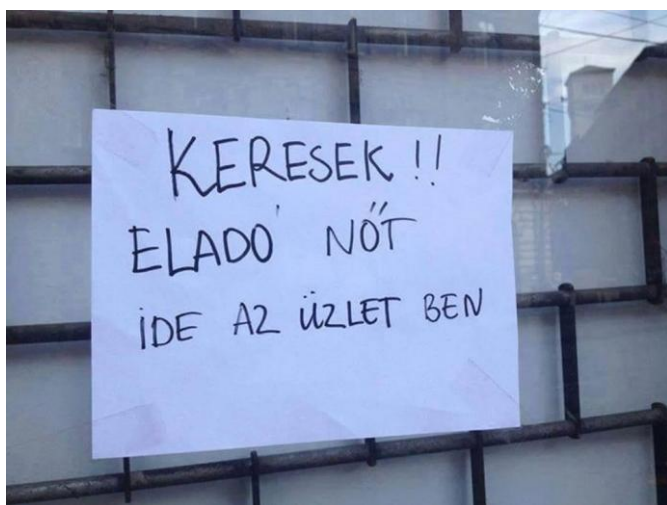 KERESEK !!
ELADÓ NŐT
İDE AZ ÜZLET BEN